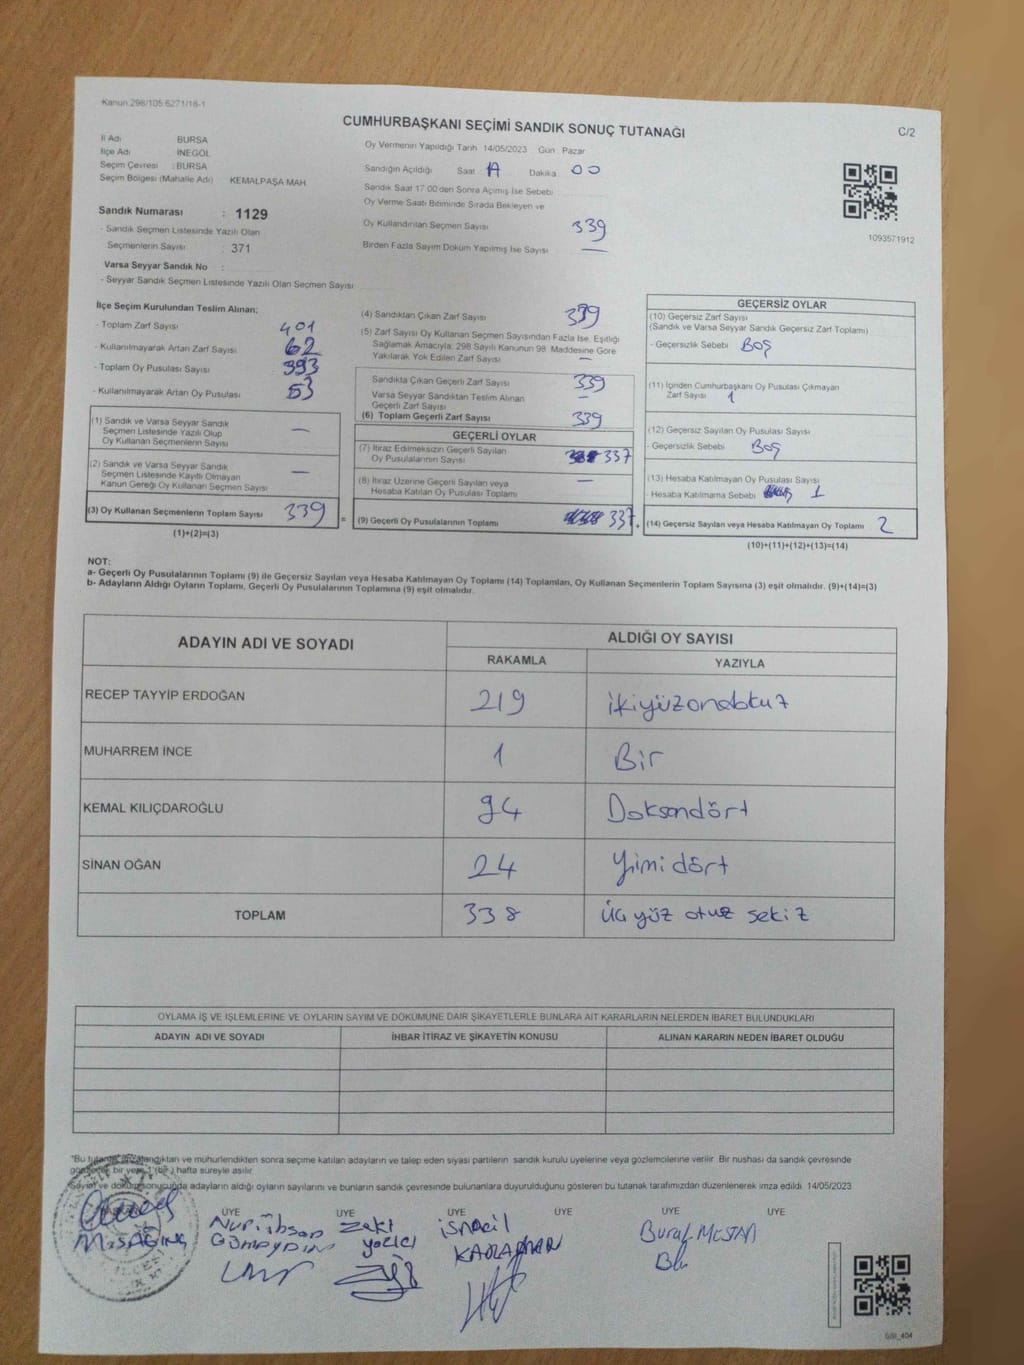 Kanun 298/105 6271/18-1
CUMHURBAŞKANI SEÇİMİ SANDIK SONUÇ TUTANAĞI
C/2
İl Adı BURSA
İlçe Adı İNEGÖL
Seçim Çevresi : BURSA
Seçim Bölgesi (Mahalle Adı) KEMALPAŞA MAH
Sandık Numarası : 1129
- Sandık Seçmen Listesinde Yazılı Olan
Seçmenlerin Sayısı : 371
Varsa Seyyar Sandık No :
- Seyyar Sandık Seçmen Listesinde Yazılı Olan Seçmen Sayısı
Oy Vermenin Yapıldığı Tarih 14/05/2023 Gün : Pazar
Sandığın Açıldığı Saat Dakika 00
Sandık Saat 17.00'den Sonra Açılmış İse Sebebi
Oy Verme Saati Bitiminde Sırada Bekleyen ve
Oy Kullandırılan Seçmen Sayısı 339
Birden Fazla Sayım Döküm Yapılmış İse Sayısı —
1093571912
İlçe Seçim Kurulundan Teslim Alınan;
- Toplam Zarf Sayısı 401
- Kullanılmayarak Artan Zarf Sayısı 62
- Toplam Oy Pusulası Sayısı 393
- Kullanılmayarak Artan Oy Pusulası 53
(1) Sandık ve Varsa Seyyar Sandık
Seçmen Listesinde Yazılı Olup
Oy Kullanan Seçmenlerin Sayısı —
(2) Sandık ve Varsa Seyyar Sandık
Seçmen Listesinde Kayıtlı Olmayan
Kanun Gereği Oy Kullanan Seçmen Sayısı —
(3) Oy Kullanan Seçmenlerin Toplam Sayısı 339 =
(1)+(2)=(3)
(4) Sandıktan Çıkan Zarf Sayısı 339
(5) Zarf Sayısı Oy Kullanan Seçmen Sayısından Fazla İse, Eşitliği
Sağlamak Amacıyla; 298 Sayılı Kanunun 98. Maddesine Göre
Yakılarak Yok Edilen Zarf Sayısı —
Sandıkta Çıkan Geçerli Zarf Sayısı 339
Varsa Seyyar Sandıktan Teslim Alınan
Geçerli Zarf Sayısı —
(6) Toplam Geçerli Zarf Sayısı 339
GEÇERLİ OYLAR
(7) İtiraz Edilmeksizin Geçerli Sayılan
Oy Pusulalarının Sayısı 337
(8) İtiraz Üzerine Geçerli Sayılan veya
Hesaba Katılan Oy Pusulası Toplamı —
(9) Geçerli Oy Pusulalarının Toplamı 337 +
GEÇERSİZ OYLAR
(10) Geçersiz Zarf Sayısı
(Sandık ve Varsa Seyyar Sandık Geçersiz Zarf Toplamı)
- Geçersizlik Sebebi Boş
(11) İçinden Cumhurbaşkanı Oy Pusulası Çıkmayan
Zarf Sayısı 1
(12) Geçersiz Sayılan Oy Pusulası Sayısı
- Geçersizlik Sebebi Boş
(13) Hesaba Katılmayan Oy Pusulası Sayısı
- Hesaba Katılmama Sebebi 1
(14) Geçersiz Sayılan veya Hesaba Katılmayan Oy Toplamı 2
(10)+(11)+(12)+(13)=(14)
NOT:
a- Geçerli Oy Pusulalarının Toplamı (9) ile Geçersiz Sayılan veya Hesaba Katılmayan Oy Toplamı (14) Toplamları, Oy Kullanan Seçmenlerin Toplam Sayısına (3) eşit olmalıdır. (9)+(14)=(3)
b- Adayların Aldığı Oyların Toplamı, Geçerli Oy Pusulalarının Toplamına (9) eşit olmalıdır.
ADAYIN ADI VE SOYADI ALDIĞI OY SAYISI
RAKAMLA YAZIYLA
RECEP TAYYİP ERDOĞAN 219 ikiyüzondokuz
MUHARREM İNCE 1 Bir
KEMAL KILIÇDAROĞLU 94 Doksandört
SİNAN OĞAN 24 Yimidört
TOPLAM 338 Üç yüz otuz sekiz
OYLAMA İŞ VE İŞLEMLERİNE VE OYLARIN SAYIM VE DÖKÜMÜNE DAİR ŞİKAYETLERLE BUNLARA AİT KARARLARIN NELERDEN İBARET BULUNDUKLARI
ADAYIN ADI VE SOYADI İHBAR İTİRAZ VE ŞİKAYETİN KONUSU ALINAN KARARIN NEDEN İBARET OLDUĞU
"Bu tutanak imzalandıktan ve mühürlendikten sonra seçime katılan adayların ve talep eden siyasi partilerin sandık kurulu üyelerine veya gözlemcilerine verilir. Bir nüshası da sandık çevresinde
görülecek bir yere 1 (bir) hafta süreyle asılır.
Sayım ve döküm sonucunda adayların aldığı oyların sayılarını ve bunların sandık çevresinde bulunanlara duyurulduğunu gösteren bu tutanak tarafımızdan düzenlenerek imza edildi. 14/05/2023
ÜYE ÜYE ÜYE ÜYE ÜYE ÜYE
Nuri ihsan Zeki ismail Burak MESTAN
GÜNAYDIN Yazıcı KARAMAN
GSI_404